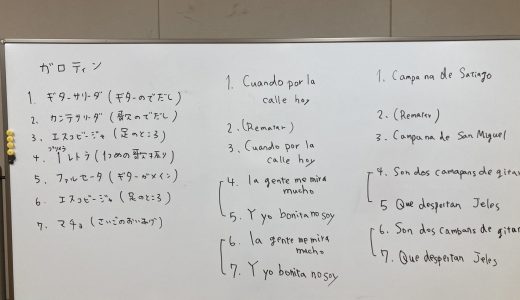 ガロティン
1. ギターサリーダ (ギターのでだし)
2. カンテサリーダ (歌のでだし)
3. エスコビージャ (足のところ)
プリメラ
4. 1レトラ (1つめの歌ぶり)
5. ファルセータ (ギターがメイン)
6. エスコビージャ (足のところ)
7. マチョ (さいごのおいあげ)
1. Cuando por la
calle hoy
2. (Rematar)
3. Cuando por la
calle hoy
4. la gente me mira
mucho
5. Y yo bonita no soy
6. la gente me mira
mucho
7. Y yo bonita no soy
1. Campana de Satiago
2. (Remater)
3. Campana de San Miguel
4. Son dos camapans de gitar
5 Que despertan Jeles
6. Son dos cambans de gitar
7. Que despertan Jeles